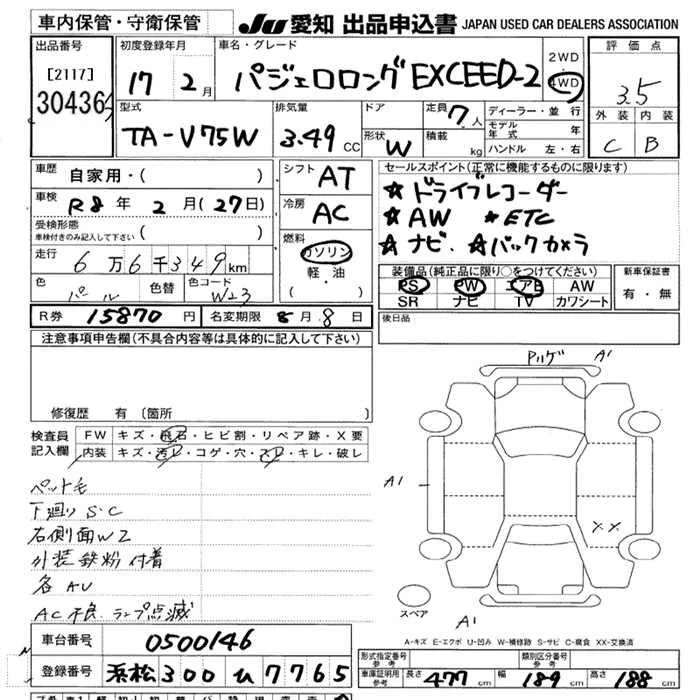 車内保管・守衛保管 JU 愛知 出品申込書 JAPAN USED CAR DEALERS ASSOCIATION
出品番号 [2117] 30436
初度登録年月 17 2月
車名・グレード パジェロロング EXCEED-2 2WD 4WD
評価点 3.5
外装 内装
C B
型式 TA-V75W
排気量 3.49 CC
ドア 形状 W
定員 7人
積載 kg
ディーラー・並行
モデル年式 年
ハンドル 左・右
車歴 自家用・( )
車検 R8年 2月(27日)
受検形態 車検付きのみ記入して下さい ( )
走行 6万6千349km
色 パール 色替 色コード W23
シフト AT
冷房 AC
燃料 ガソリン
軽・油
・( )
セールスポイント(正常に機能するものに限ります)
★ドライブレコーダー
★AW ★ETC
★ナビ. ★バックカメラ
装備品(純正品に限り〇をつけてください)
PS PW エアB AW
SR ナビ TV カワシート
新車保証書
有・無
R券 15870円 名変期限 8月8日
後日品
注意事項申告欄(不具合内容等は具体的に記入して下さい)
修復歴 有(箇所
検査員記入欄
FW キズ・飛石・ヒビ割・リペア跡・X要
内装 キズ・汚レ・コゲ・穴・スレ・キレ・破レ
ペット毛
下廻りS・C
右側面W2
外装鉄粉付着
各AU
AC不良 ランプ点滅
A1
A1
XX
スペア
A1
A-キズ E-エクボ U-凹み W-補修跡 S-サビ C-腐食 XX-交換済
車台番号 0500146
登録番号 浜松 300 ひ 7765
形式指定番号 参考
類別区分番号 参考
車庫証明用 参考 長さ 477cm 幅 189cm 高さ 188cm